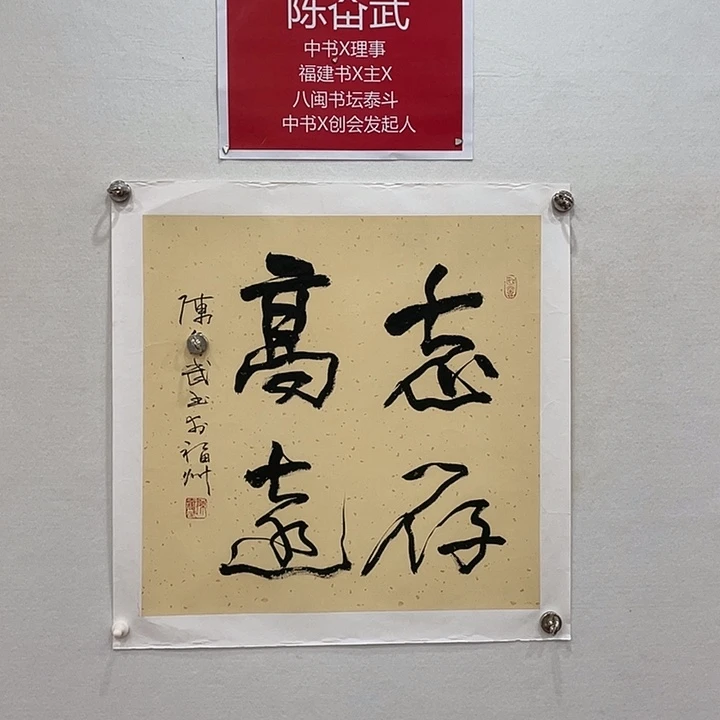 陈奋武
中书X理事
福建书X主X
八闽书坛泰斗
中书X创会发起人
志存
高遠
陳奮武书於福州